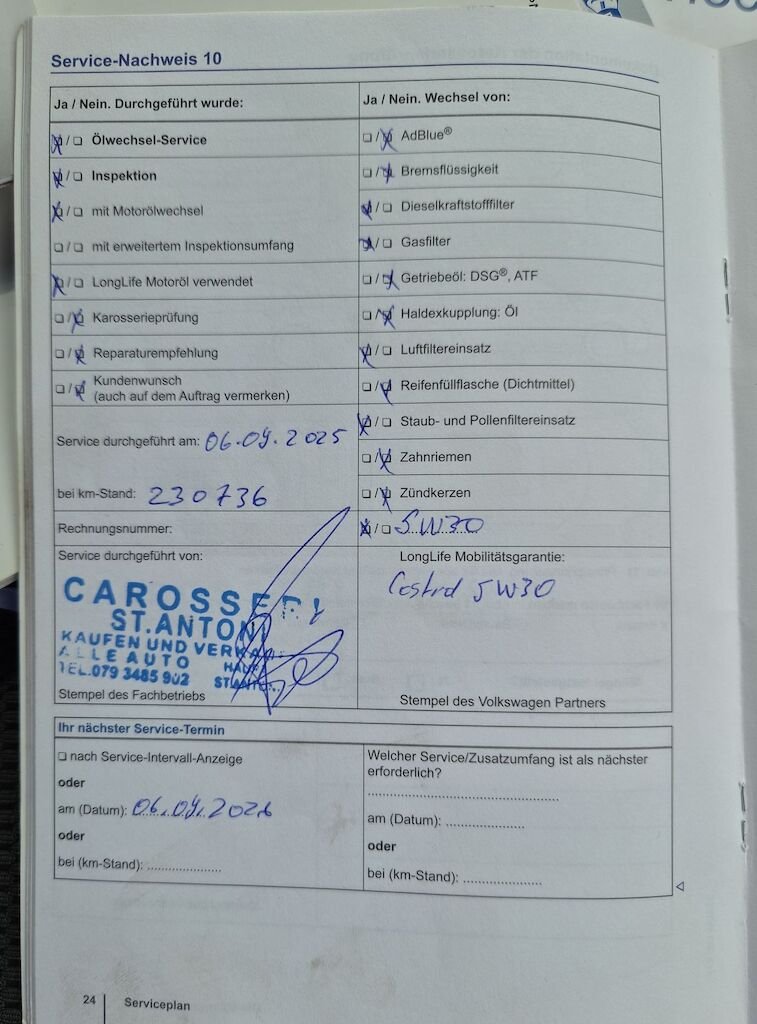 Service-Nachweis 10
Ja / Nein. Durchgeführt wurde:
Ölwechsel-Service
Inspektion
mit Motorölwechsel
mit erweitertem Inspektionsumfang
LongLife Motoröl verwendet
Karosserieprüfung
Reparaturempfehlung
Kundenwunsch
(auch auf dem Auftrag vermerken)
Service durchgeführt am: 06.09.2025
bei km-Stand: 230736
Rechnungsnummer:
Service durchgeführt von:
CAROSSERI
ST.ANTONI
KAUFEN UND VERKAU
ALLE AUTO
TEL.079 3485 902
Stempel des Fachbetriebs
Ja / Nein. Wechsel von:
AdBlue®
Bremsflüssigkeit
Dieselkraftstofffilter
Gasfilter
Getriebeöl: DSG®, ATF
Haldexkupplung: Öl
Luftfiltereinsatz
Reifenfüllflasche (Dichtmittel)
Staub- und Pollenfiltereinsatz
Zahnriemen
Zündkerzen
5W30
LongLife Mobilitätsgarantie:
Castrol 5W30
Stempel des Volkswagen Partners
Ihr nächster Service-Termin
nach Service-Intervall-Anzeige
oder
am (Datum): 06.09.2026
oder
bei (km-Stand):
Welcher Service/Zusatzumfang ist als nächster
erforderlich?
am (Datum):
oder
bei (km-Stand):
24 Serviceplan